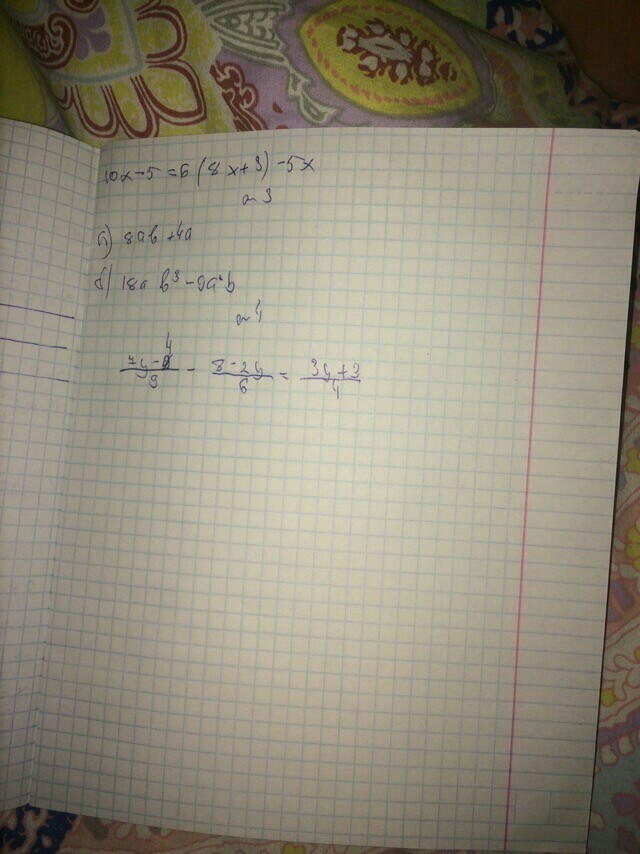 10x-5=6(8x+3)-5x
~3
а) 8ab+4a
б) 18ab³-9a²b
~4
7y-4/9 - 8-2y/6 = 3y+3/4